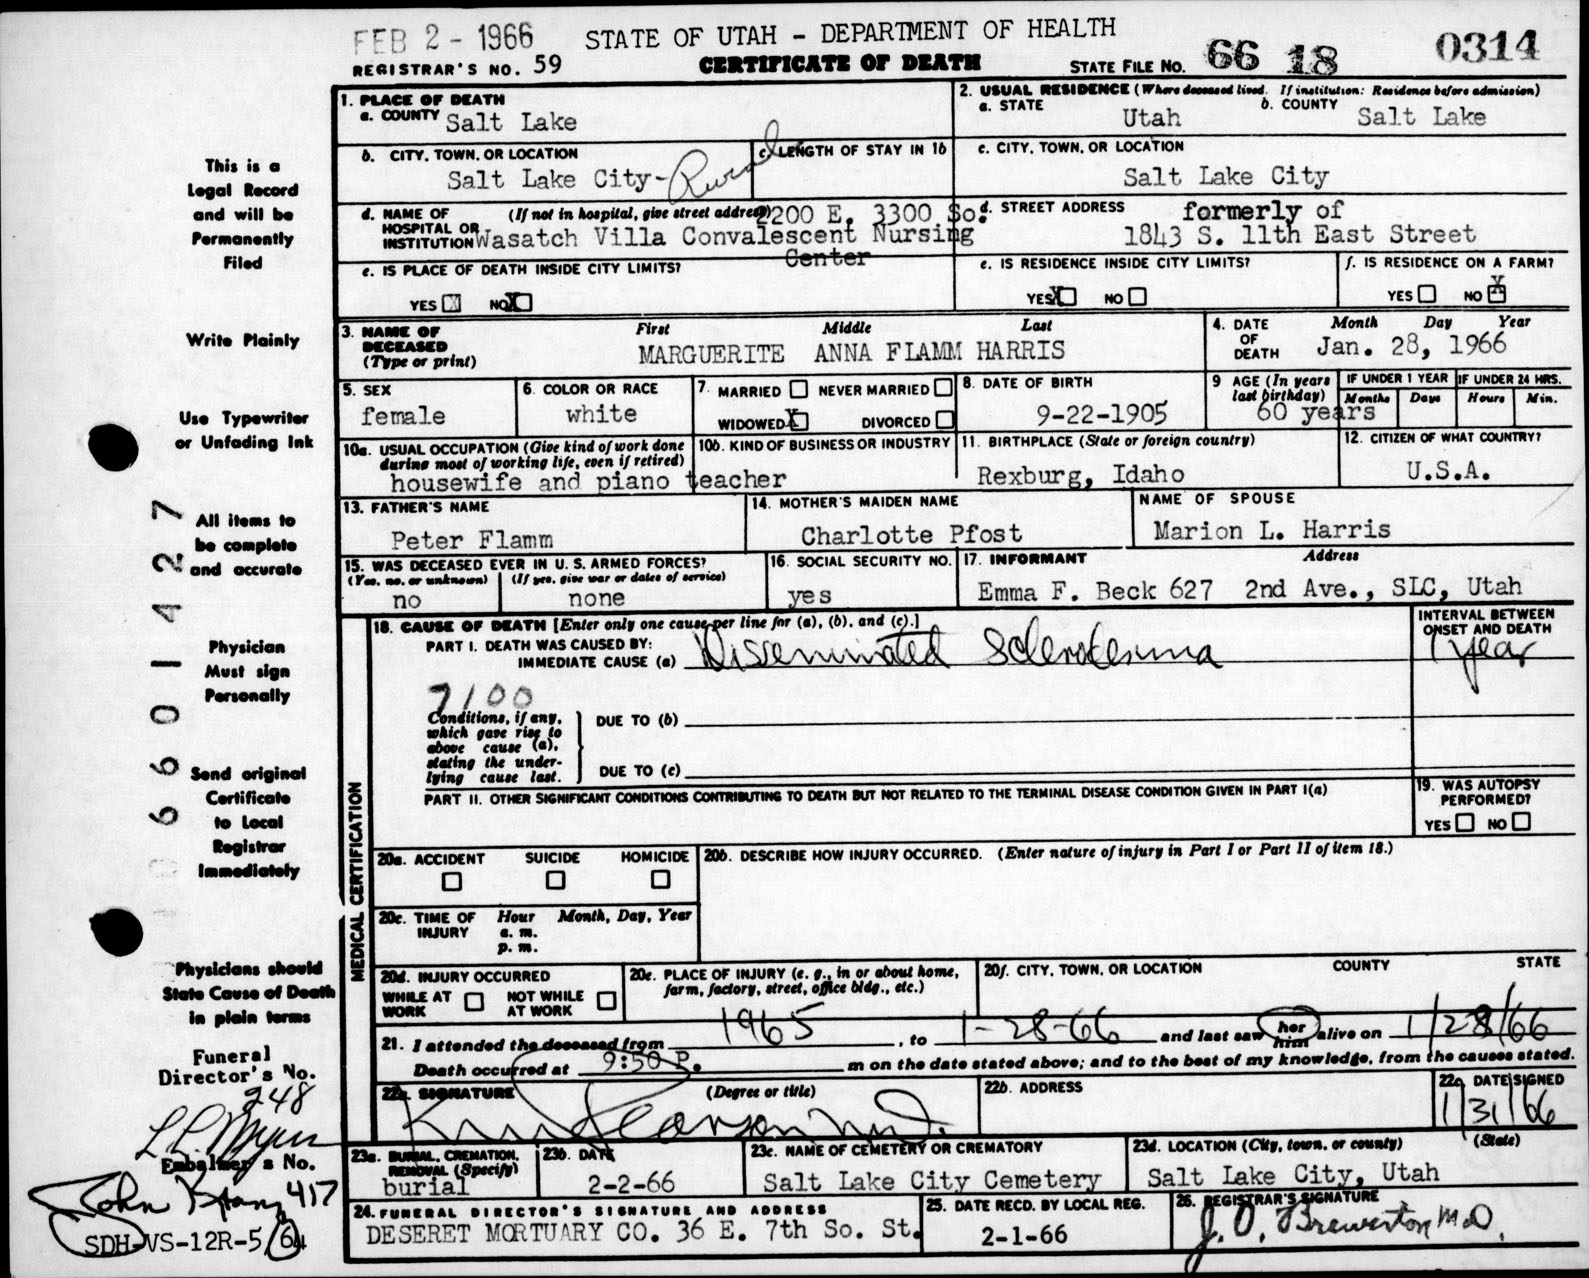 FEB 2 - 1966 STATE OF UTAH - DEPARTMENT OF HEALTH
REGISTRAR'S NO. 59 CERTIFICATE OF DEATH STATE FILE NO. 66 18 0314
1. PLACE OF DEATH
a. COUNTY Salt Lake
2. USUAL RESIDENCE (Where deceased lived. If institution: Residence before admission)
a. STATE Utah b. COUNTY Salt Lake
b. CITY, TOWN, OR LOCATION
Salt Lake City-Rural
c. LENGTH OF STAY IN 1b
c. CITY, TOWN, OR LOCATION
Salt Lake City
d. NAME OF HOSPITAL OR INSTITUTION (If not in hospital, give street address) 2200 E. 3300 So.
Wasatch Villa Convalescent Nursing
Center
d. STREET ADDRESS formerly of
1843 S. 11th East Street
e. IS PLACE OF DEATH INSIDE CITY LIMITS?
YES X NO X
e. IS RESIDENCE INSIDE CITY LIMITS?
YES X NO
f. IS RESIDENCE ON A FARM?
YES NO X
3. NAME OF DECEASED (Type or print)
First Middle Last
MARGUERITE ANNA FLAMM HARRIS
4. DATE OF DEATH Month Day Year
Jan. 28, 1966
5. SEX
female
6. COLOR OR RACE
white
7. MARRIED NEVER MARRIED
WIDOWED X DIVORCED
8. DATE OF BIRTH
9-22-1905
9 AGE (In years last birthday)
60 years
IF UNDER 1 YEAR IF UNDER 24 HRS.
Months Days Hours Min.
10a. USUAL OCCUPATION (Give kind of work done during most of working life, even if retired)
10b. KIND OF BUSINESS OR INDUSTRY
housewife and piano teacher
11. BIRTHPLACE (State or foreign country)
Rexburg, Idaho
12. CITIZEN OF WHAT COUNTRY?
U.S.A.
13. FATHER'S NAME
Peter Flamm
14. MOTHER'S MAIDEN NAME
Charlotte Pfost
NAME OF SPOUSE
Marion L. Harris
15. WAS DECEASED EVER IN U. S. ARMED FORCES?
(Yes, no, or unknown) (If yes, give war or dates of service)
no none
16. SOCIAL SECURITY NO.
yes
17. INFORMANT Address
Emma F. Beck 627 2nd Ave., SLC, Utah
18. CAUSE OF DEATH [Enter only one cause per line for (a), (b), and (c).]
INTERVAL BETWEEN ONSET AND DEATH
PART I. DEATH WAS CAUSED BY:
IMMEDIATE CAUSE (a) Disseminated Scleroderma 1 year
7100
Conditions, if any, which gave rise to above cause (a), stating the underlying cause last.
DUE TO (b)
DUE TO (c)
PART II. OTHER SIGNIFICANT CONDITIONS CONTRIBUTING TO DEATH BUT NOT RELATED TO THE TERMINAL DISEASE CONDITION GIVEN IN PART I(a)
19. WAS AUTOPSY PERFORMED?
YES NO
MEDICAL CERTIFICATION
20a. ACCIDENT SUICIDE HOMICIDE
20b. DESCRIBE HOW INJURY OCCURRED. (Enter nature of injury in Part I or Part II of item 18.)
20c. TIME OF INJURY Hour Month, Day, Year
a. m.
p. m.
20d. INJURY OCCURRED
WHILE AT WORK NOT WHILE AT WORK
20e. PLACE OF INJURY (e. g., in or about home, farm, factory, street, office bldg., etc.)
20f. CITY, TOWN, OR LOCATION COUNTY STATE
21. I attended the deceased from 1965, to 1-28-66 and last saw her him alive on 1/28/66
Death occurred at 9:50 P. m on the date stated above; and to the best of my knowledge, from the causes stated.
22a. SIGNATURE (Degree or title)
22b. ADDRESS
22c. DATE SIGNED
1/31/66
23a. BURIAL, CREMATION, REMOVAL (Specify)
burial
23b. DATE
2-2-66
23c. NAME OF CEMETERY OR CREMATORY
Salt Lake City Cemetery
23d. LOCATION (City, town, or county) (State)
Salt Lake City, Utah
24. FUNERAL DIRECTOR'S SIGNATURE AND ADDRESS
DESERET MORTUARY CO. 36 E. 7th So. St.
25. DATE RECD. BY LOCAL REG.
2-1-66
26. REGISTRAR'S SIGNATURE
J. O. Brewerton M.D.
This is a
Legal Record
and will be
Permanently
Filed
Write Plainly
Use Typewriter
or Unfading Ink
All items to
be complete
and accurate
Physician
Must sign
Personally
Send original
Certificate
to Local
Registrar
Immediately
Physicians should
State Cause of Death
in plain terms
Funeral
Director's No.
248
Embalmer's No.
417
SDH-VS-12R-5/64
6601427